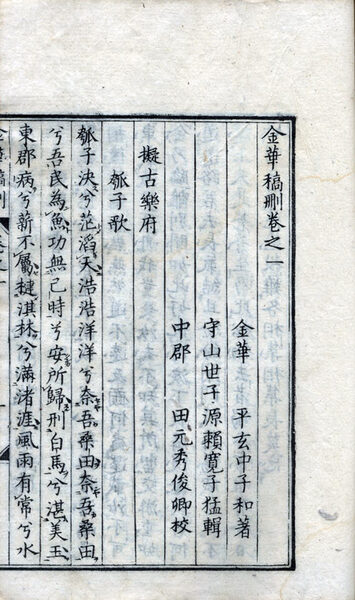 金華稿刪卷之一
金華 平玄中子和著
守山世子源賴寛子猛輯
中郡 田元秀俊卿校
擬古樂府
瓠子歌
瓠子決兮茫滔天浩浩洋洋兮奈吾桑田奈吾桑田
兮吾民為魚功無已時兮安所歸刑白馬兮湛美玉
東郡病兮薪不屬揵淇林兮滿渚涯風雨有常兮水